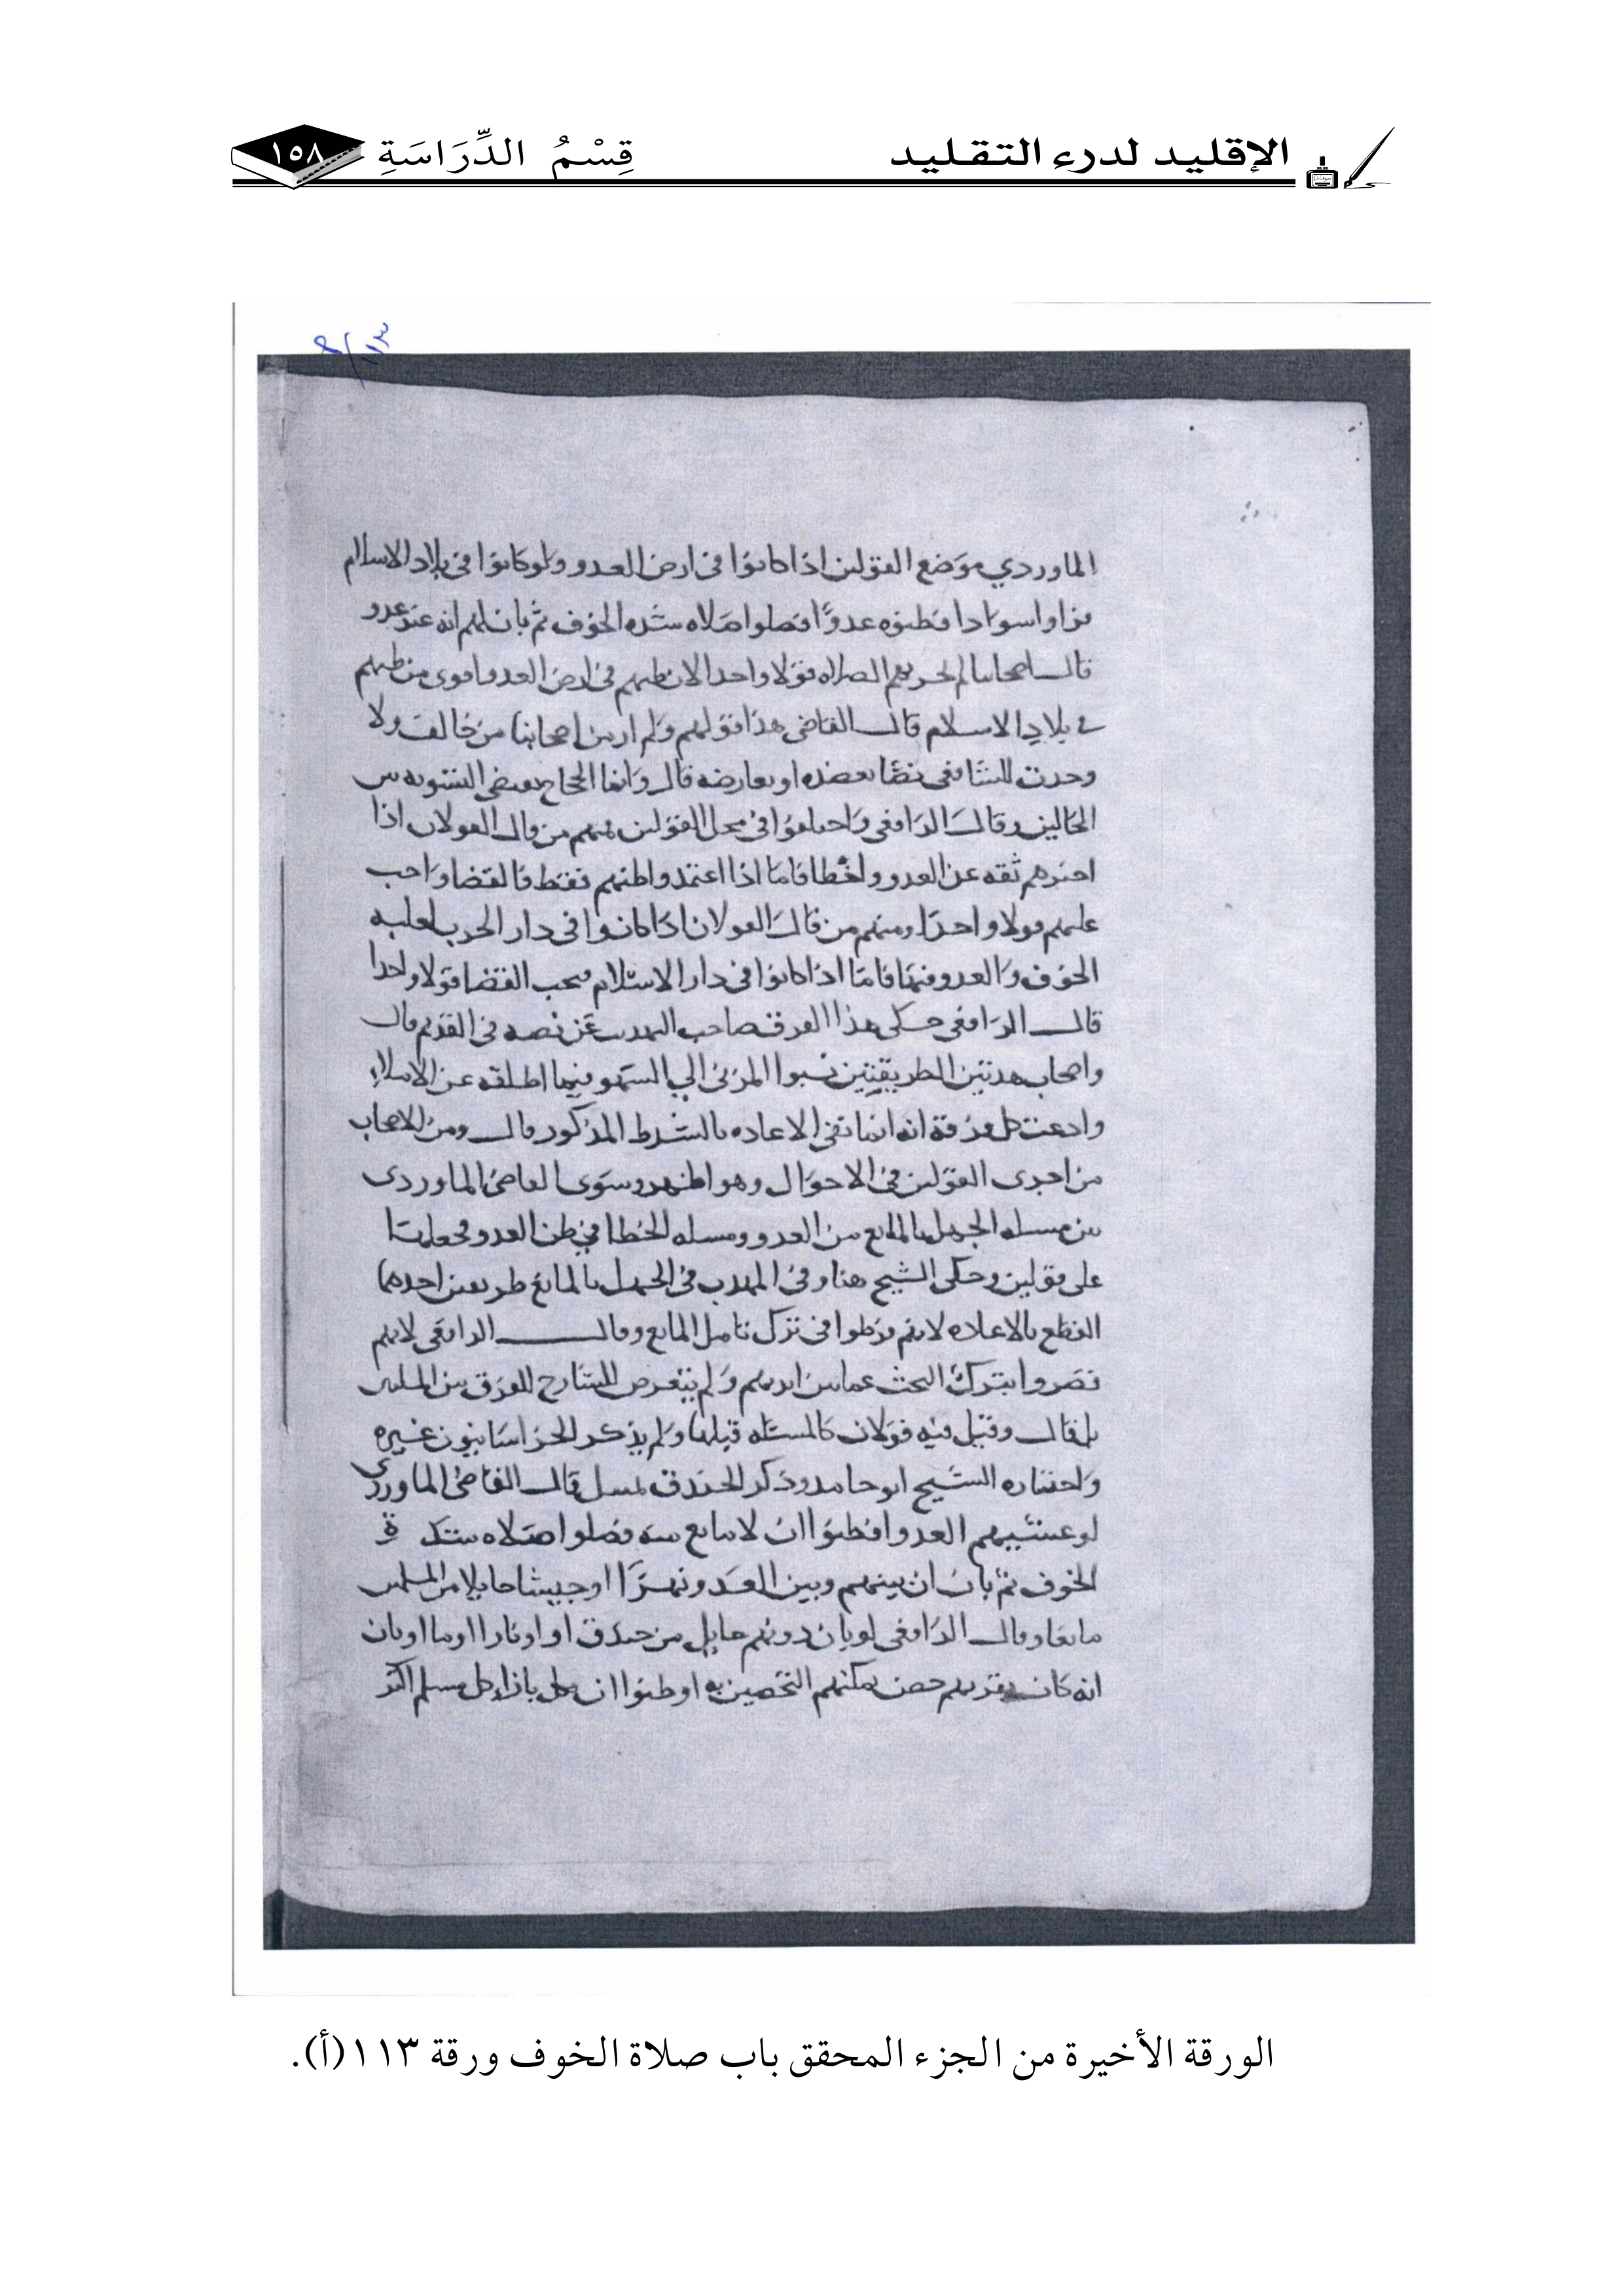 الإقليد لدرء التقليد
قِسْمُ الدِّرَاسَةِ
١٥٨
الماوردي موضع القولين اذا كانوا في ارض العدو ولو كانوا في بلاد الاسلام
فراوا سوادا فظنوه عدوًا فصلوا صلاه شده الخوف ثم بان لهم انه عدو
قال اصحابنا لم الصلاه قولا واحدا لان ظنهم في ارض العدو اقوى من ظنهم
في بلاد الاسلام قال القاضي هذا قولهم ولم ار من اصحابنا من خالف ولا
وجدت للشافعي نصًا يعضده او يعارضه قال وانما الحجاج يقتضي التسويه بين
الحالين وقال الرافعي واختلفوا في محل القولين فمنهم من قال القولان اذا
اخبرهم ثقه عن العدو واخطا فاما اذا اعتمدوا ظنهم فقط فالقضا واجب
عليهم قولا واحدا ومنهم من قال القولان اذا كانوا في دار الحرب لغلبه
الخوف والعدو فيها فاما اذا كانوا في دار الاسلام فيجب القضا قولا واحدا
قال الرافعي حكى هذا الفرق صاحب التهذيب عن نصه في القديم قال
واصحاب هذين الطريقين نسبوا المزني الي السهو فيما اطلقه عن الاملا
وادعت كل فرقة انه انما نفى الاعاده بالشرط المذكور قال ومن الاصحاب
من اجرى القولين في الاحوال وهو اظهر وسوى القاضي الماوردي
بين مسله الجهل بالمانع من العدو ومسله الخطا في ظن العدو فجعلها
على قولين وحكى الشيخ هنا وفي المهذب في الجهل بالمانع طريقين احدهما
القطع بالاعاده لانهم فرطوا في ترك تامل المانع وقال الرافعي لانهم
قصروا بترك البحث عما بين ايديهم ولم يتعرض الشارح للفرق بين
بل قال وقيل فيه قولان كالمسئله قبلها ولم يذكر الخراسانيون غيره
واختاره الشيخ ابو حامد وذكر الخندق قال القاضي الماوردي
لو غشيهم العدو فظنوا ان لا مانع منه فصلوا صلاه شدة
الخوف ثم بان ان بينهم وبين العدو نهرًا او جيشا حايلا من المسلمين
مانعا وقال الرافعي لو بان دونهم حايل من خندق او نارا او ما او بان
انه كان بقربهم حصن يمكنهم التحصين به او ظنوا ان بازاء كل مسلم اكثر
الورقة الأخيرة من الجزء المحقق باب صلاة الخوف ورقة ١١٣(أ).